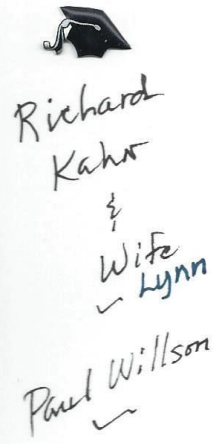 Richard
Kahn
&
Wife
Lynn
Paul Willson